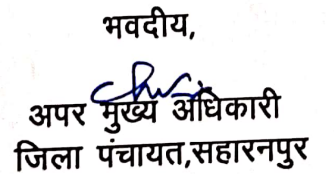 भवदीय,
अपर मुख्य अधिकारी
जिला पंचायत,सहारनपुर